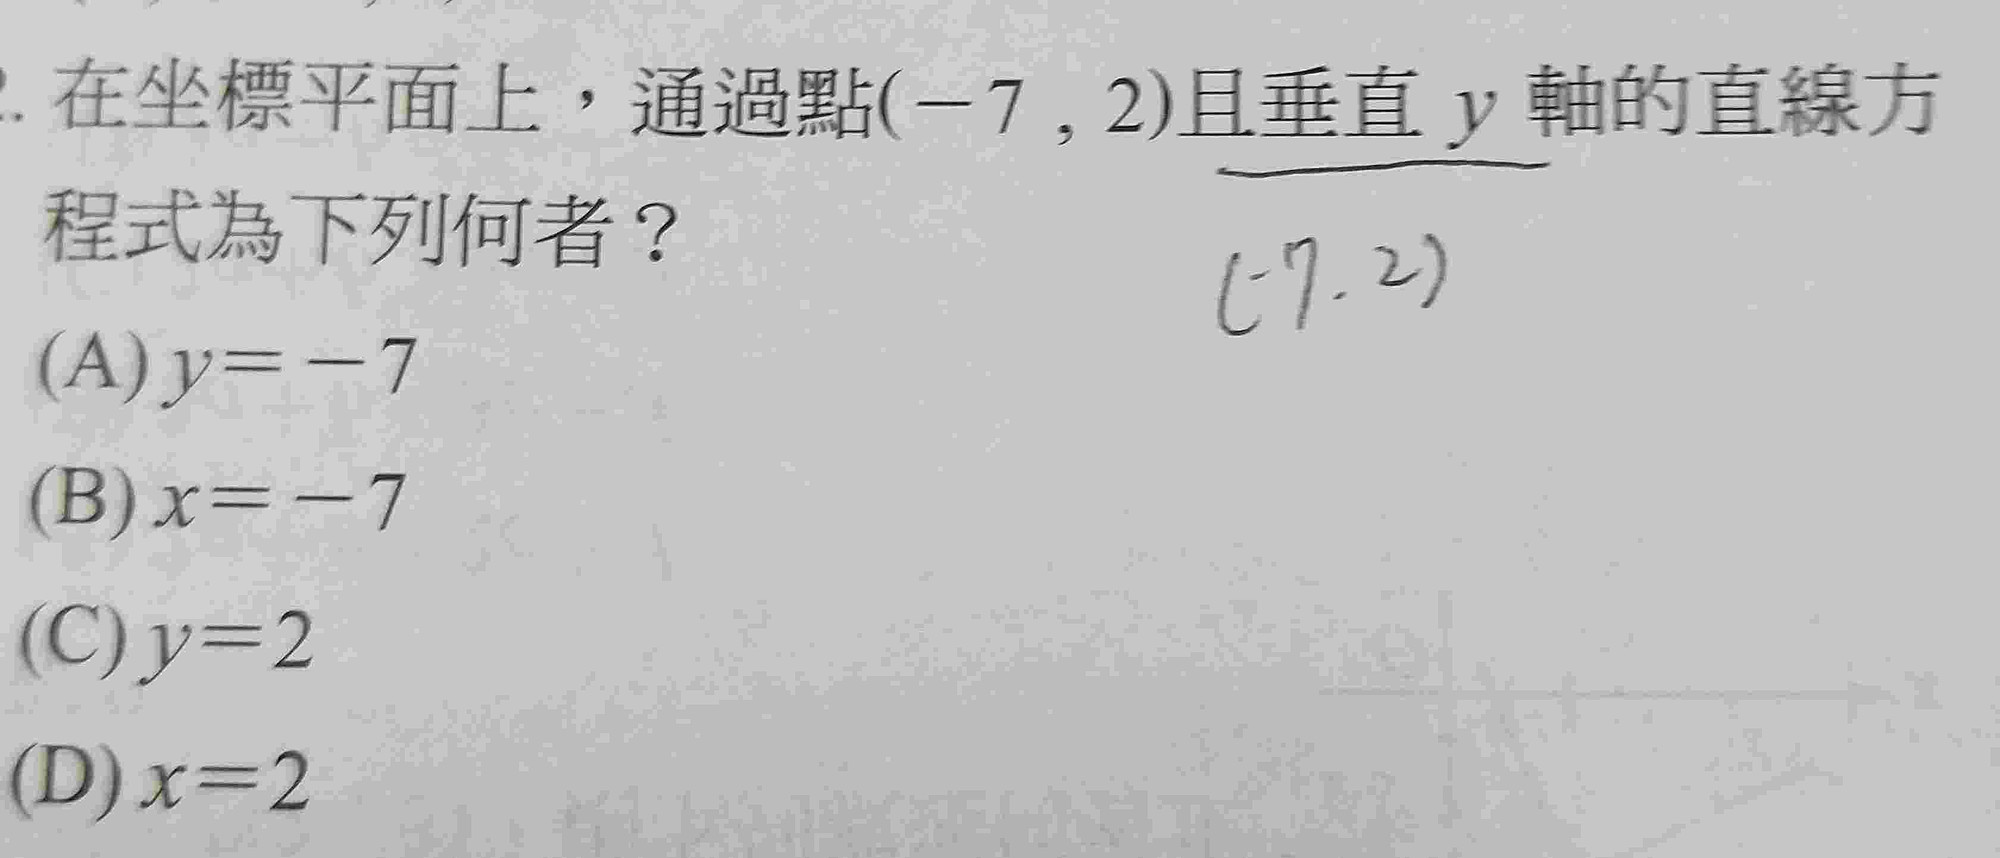 . 在坐標平面上，通過點(－7 , 2)且垂直 y 軸的直線方
程式為下列何者？
(-7. 2)
(A) y＝－7
(B) x＝－7
(C) y＝2
(D) x＝2